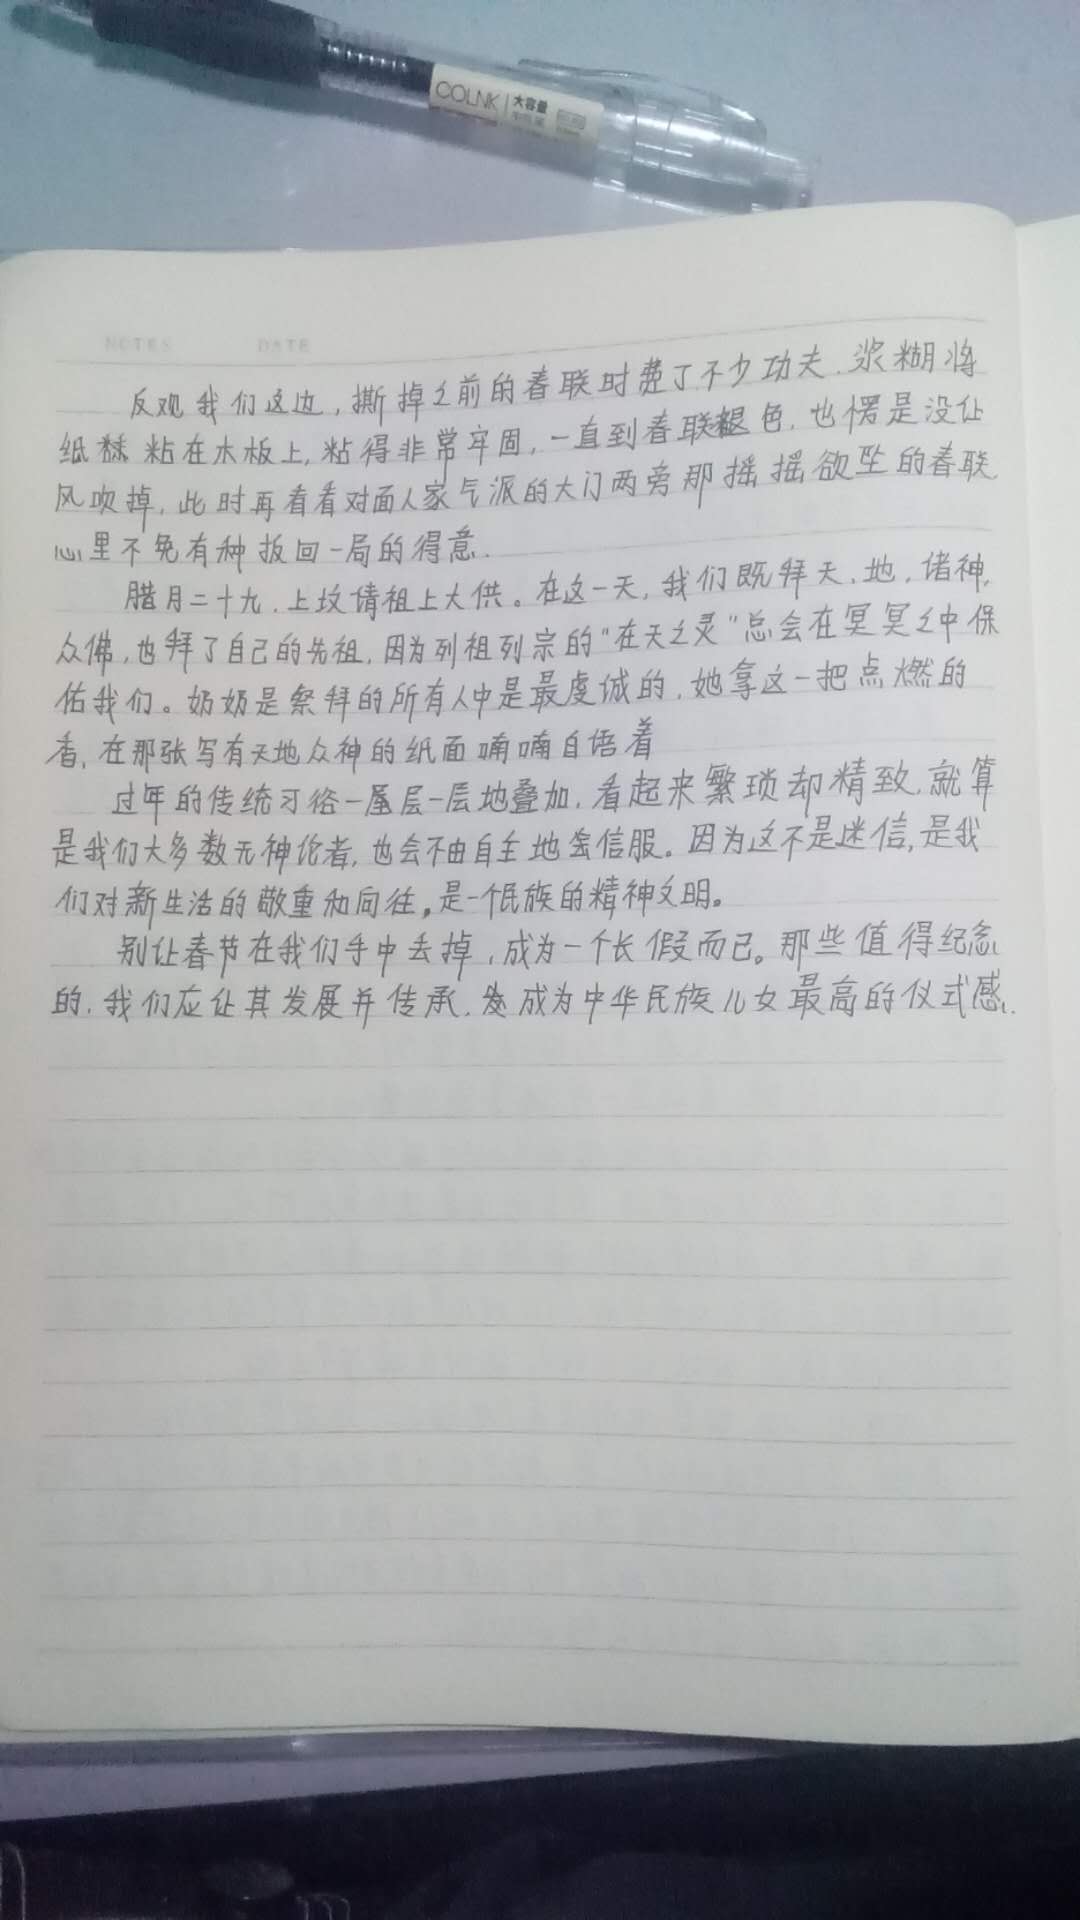 COLNK 大容量
NOTES DATE
反观我们这边，撕掉之前的春联时费了不少功夫．浆糊将
纸 粘在木板上，粘得非常牢固，一直到春联褪色，也愣是没让
风吹掉，此时再看看对面人家气派的大门两旁那摇摇欲坠的春联
心里不免有种扳回一局的得意．
腊月二十九，上坟请祖上大供。在这一天，我们既拜天、地，诸神，
众佛，也拜了自己的先祖，因为列祖列宗的“在天之灵”总会在冥冥之中保
佑我们。奶奶是祭拜的所有人中是最虔诚的，她拿这一把点燃的
香，在那张写有天地众神的纸面喃喃自语着
过年的传统习俗一层层一层地叠加，看起来繁琐却精致，就算
是我们大多数无神论者，也会不由自主地 信服。因为这不是迷信，是我
们对新生活的敬重和向往，是一个民族的精神文明。
别让春节在我们手中丢掉，成为一个长假而已。那些值得纪念
的，我们应让其发展并传承， 成为中华民族儿女最高的仪式感．